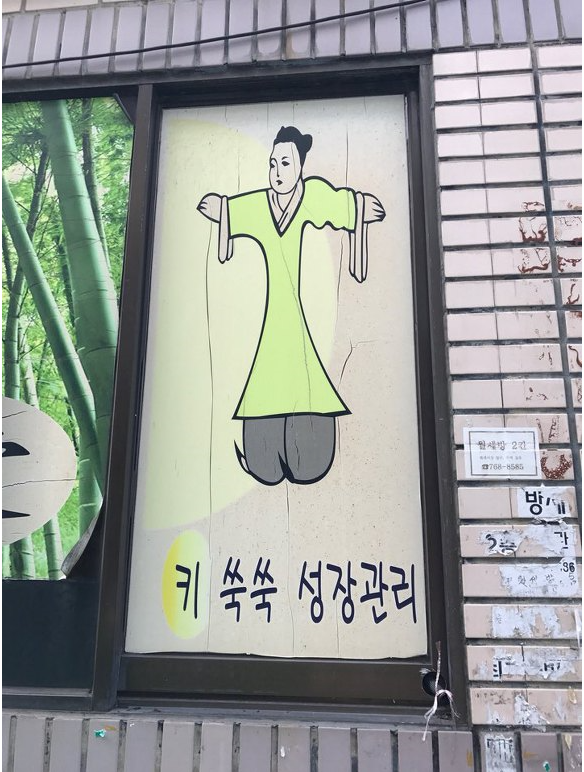 키 쑥쑥 성장관리
월세방 2칸
☎768-8585
방세